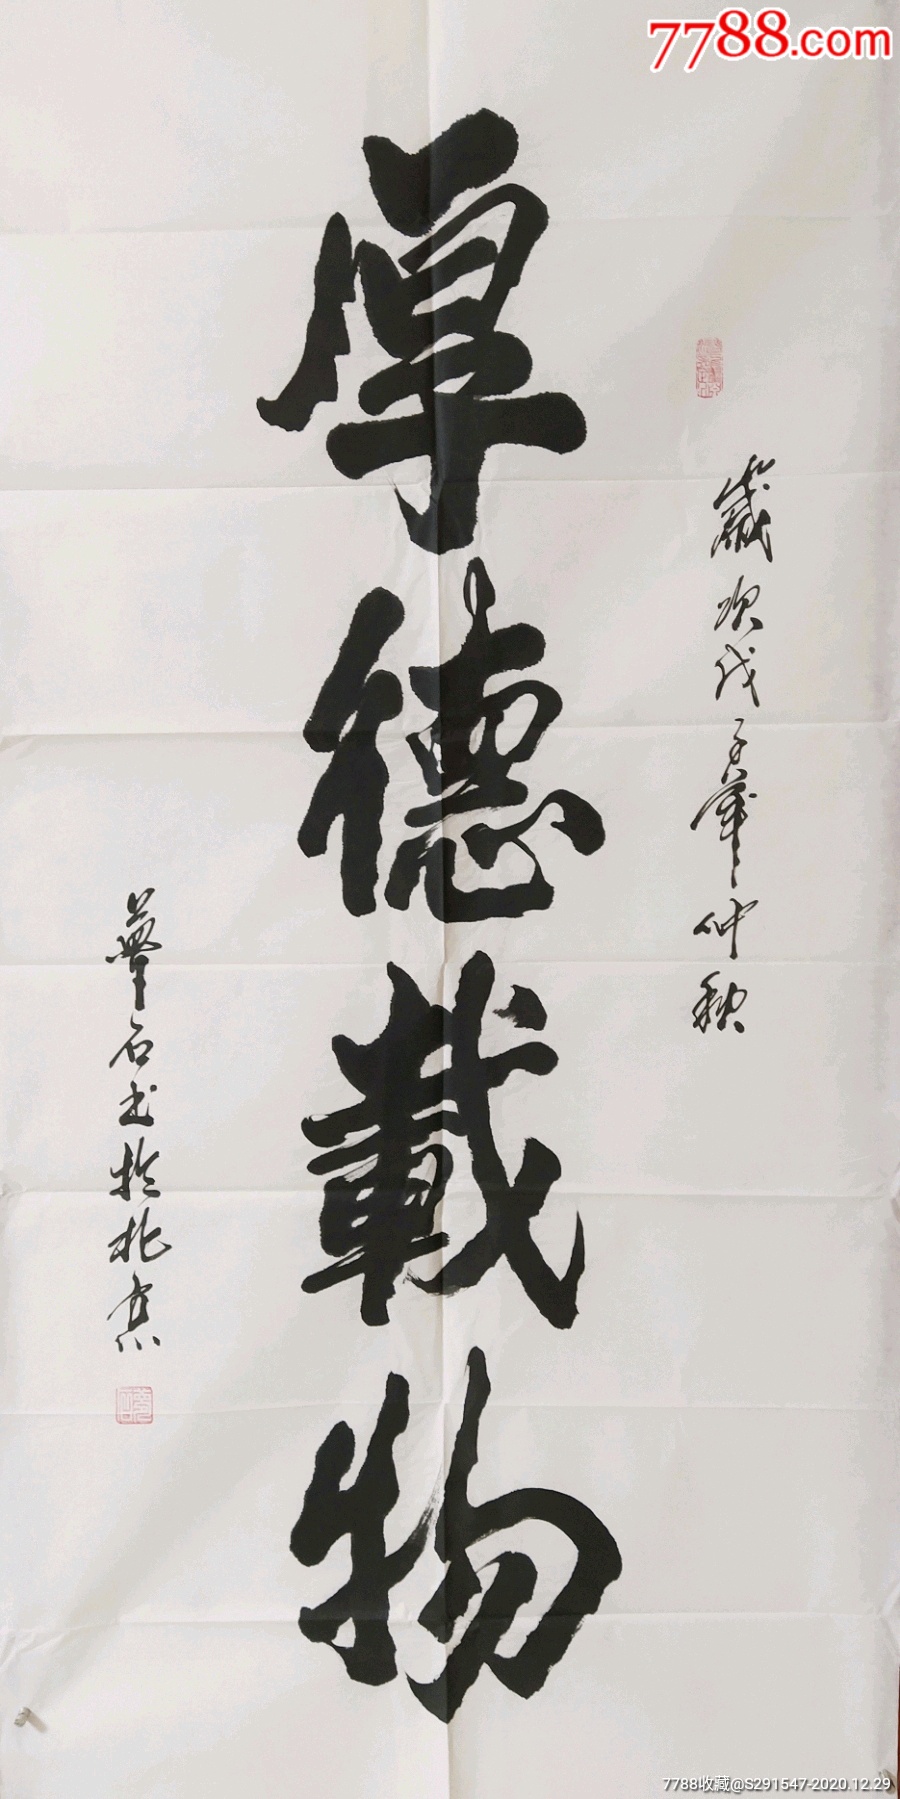 7788.com
厚德載物
歲次戊子年仲秋
夢石书於北京
7788收藏@S291547-2020.12.29